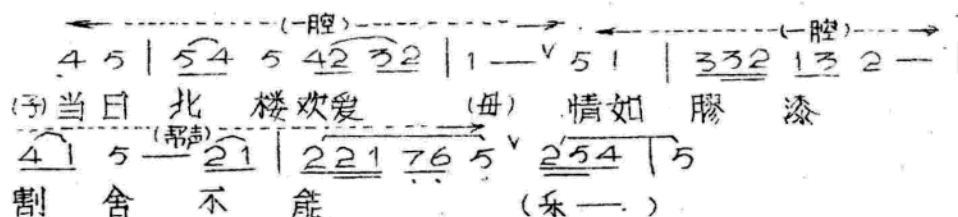 (一腔) (一腔)
4 5 | 54 5 42 32 | 1 — ∨ 5 1 | 332 13 2 — |
(子)当日 北 楼欢爱 (毋) 情如 膠 漆
(帮声)
41 5 — 21 | 221 76 5 ∨ 254 | 5
割 舍 不 能 (乐 — )